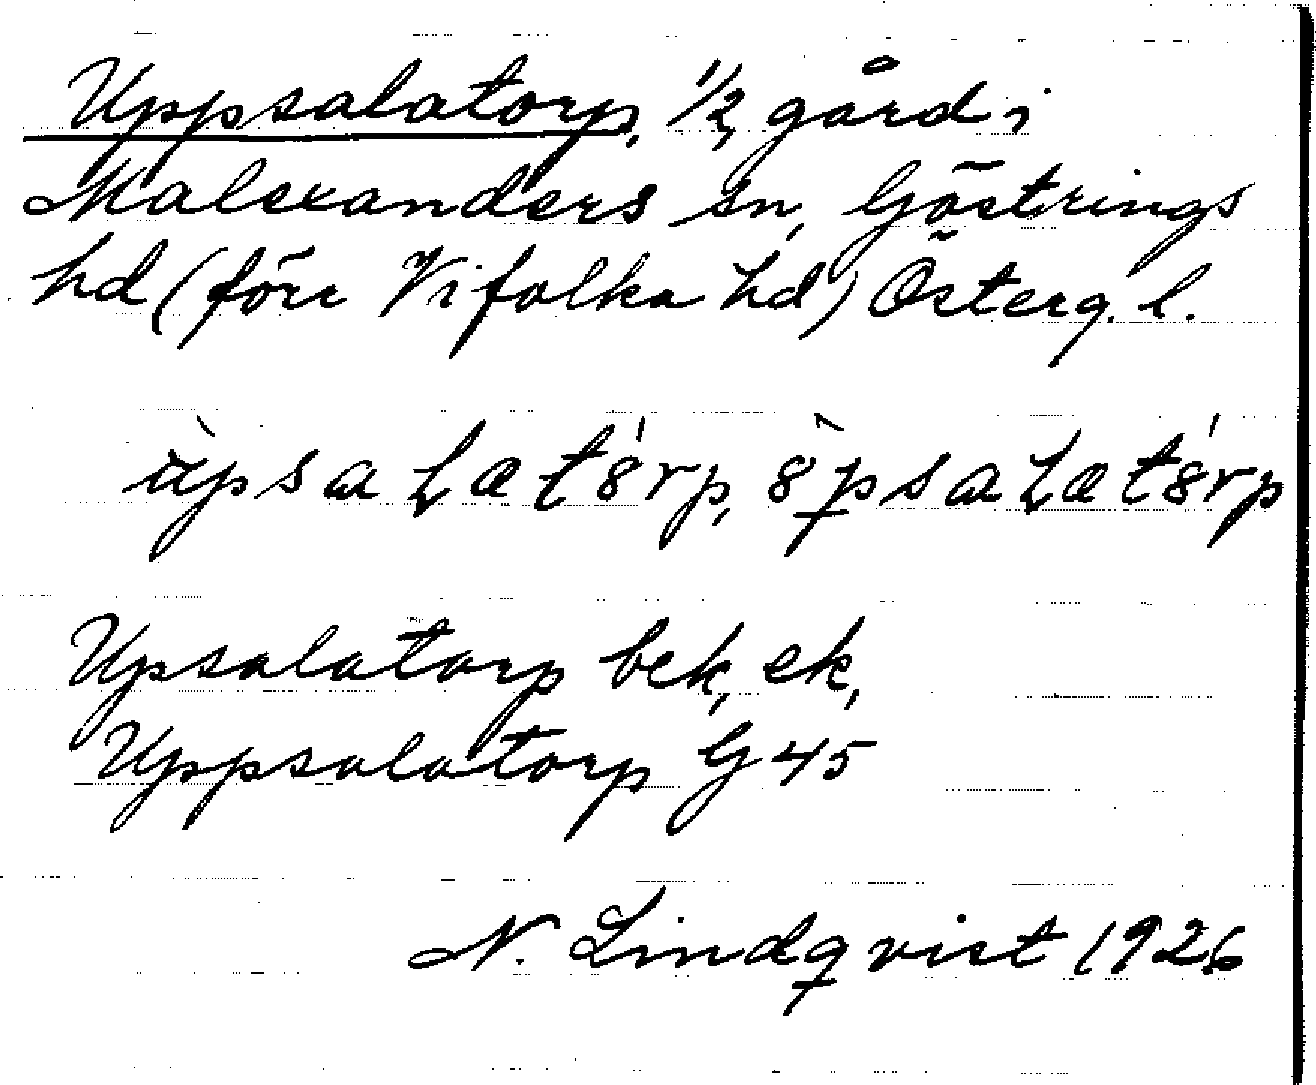 Uppsalatorp, 1/2 gård i
Malexanders sn, Göstrings
hd (förr Vifolka hd) Österg. l.
Upsalatorp bek, ek,
Uppsalatorp G 45
N. Lindqvist 1926